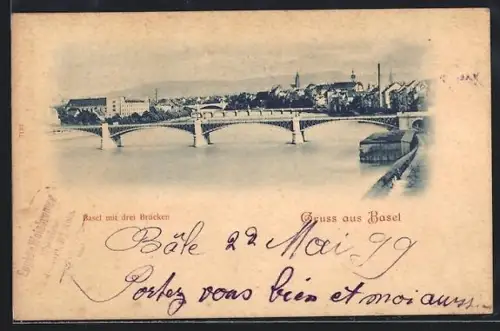 Basel mit drei Brücken
Gruss aus Basel
Bâle 2d Mai 99
Portez vous bien et moi aussi